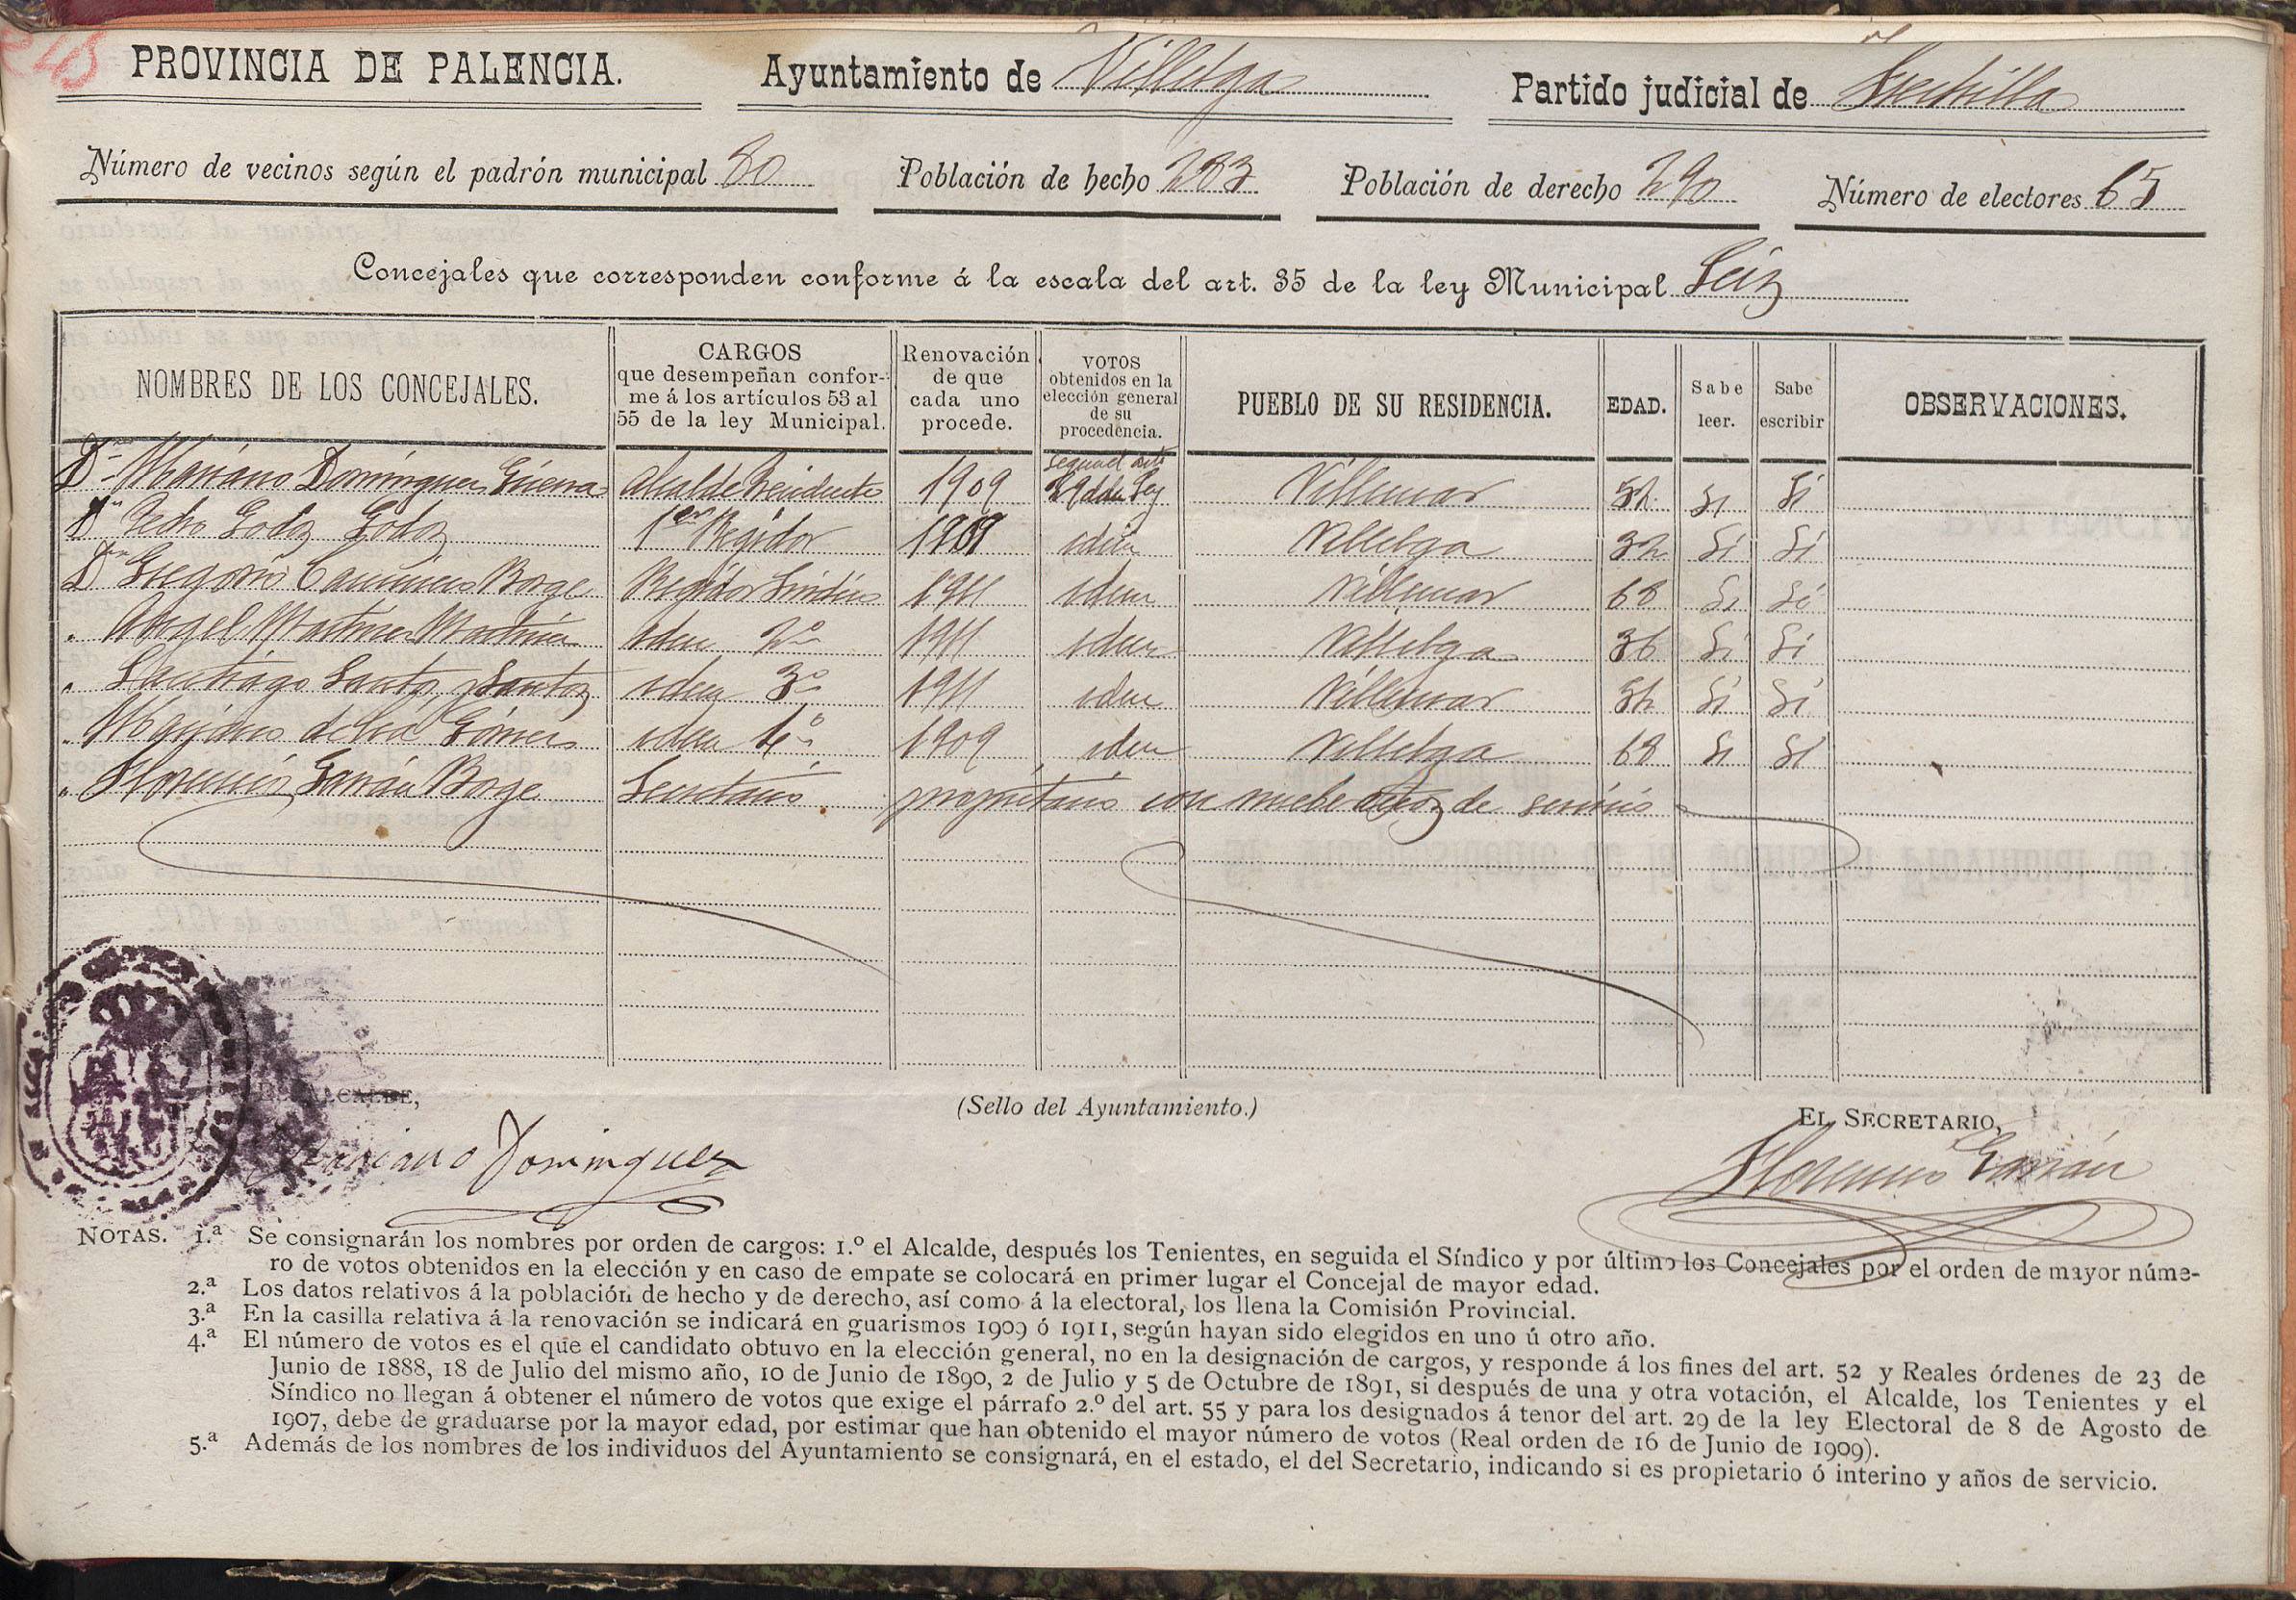 PROVINCIA DE PALENCIA. Ayuntamiento de Villelga Partido judicial de Frechilla
Número de vecinos según el padrón municipal 80 Población de hecho 283 Población de derecho 290 Número de electores 65
Concejales que corresponden conforme á la escala del art. 35 de la ley Municipal Seiz
NOMBRES DE LOS CONCEJALES. CARGOS que desempeñan confor-me á los artículos 53 al 55 de la ley Municipal. Renovación de que cada uno procede. VOTOS obtenidos en la elección general de su procedencia. PUEBLO DE SU RESIDENCIA. EDAD. Sabe leer. Sabe escribir OBSERVACIONES.
Dn Mariano Dominguez Guerra Alcalde Presidente 1909 segun el art 29 de la Ley Villemar 52 Si Si
Dn Pedro Godoz Godoz 1er Regidor 1909 idem Villelga 32 Si Si
Dn Gregorio Caminero Borge Regidor Sindico 1911 idem Villemar 68 Si Si
" Angel Martinez Martinez idem 2º 1911 idem Villelga 36 Si Si
" Santiago Santos Santos idem 3º 1911 idem Villemar 52 Si Si
" Mariano de la Gómez idem 4º 1909 idem Villelga 68 Si Si
" Florencio Garrán Borge Secretario. propietario con nuebe años de servicio
EL ALCALDE, (Sello del Ayuntamiento.) EL SECRETARIO,
Mariano Dominguez Florencio Garrán
NOTAS. 1.ª Se consignarán los nombres por orden de cargos: 1.º el Alcalde, después los Tenientes, en seguida el Síndico y por último los Concejales por el orden de mayor núme-
ro de votos obtenidos en la elección y en caso de empate se colocará en primer lugar el Concejal de mayor edad.
2.ª Los datos relativos á la población de hecho y de derecho, así como á la electoral, los llena la Comisión Provincial.
3.ª En la casilla relativa á la renovación se indicará en guarismos 1909 ó 1911, según hayan sido elegidos en uno ú otro año.
4.ª El número de votos es el que el candidato obtuvo en la elección general, no en la designación de cargos, y responde á los fines del art. 52 y Reales órdenes de 23 de
Junio de 1888, 18 de Julio del mismo año, 10 de Junio de 1890, 2 de Julio y 5 de Octubre de 1891, si después de una y otra votación, el Alcalde, los Tenientes y el
Síndico no llegan á obtener el número de votos que exige el párrafo 2.º del art. 55 y para los designados á tenor del art. 29 de la ley Electoral de 8 de Agosto de
1907, debe de graduarse por la mayor edad, por estimar que han obtenido el mayor número de votos (Real orden de 16 de Junio de 1909).
5.ª Además de los nombres de los individuos del Ayuntamiento se consignará, en el estado, el del Secretario, indicando si es propietario ó interino y años de servicio.